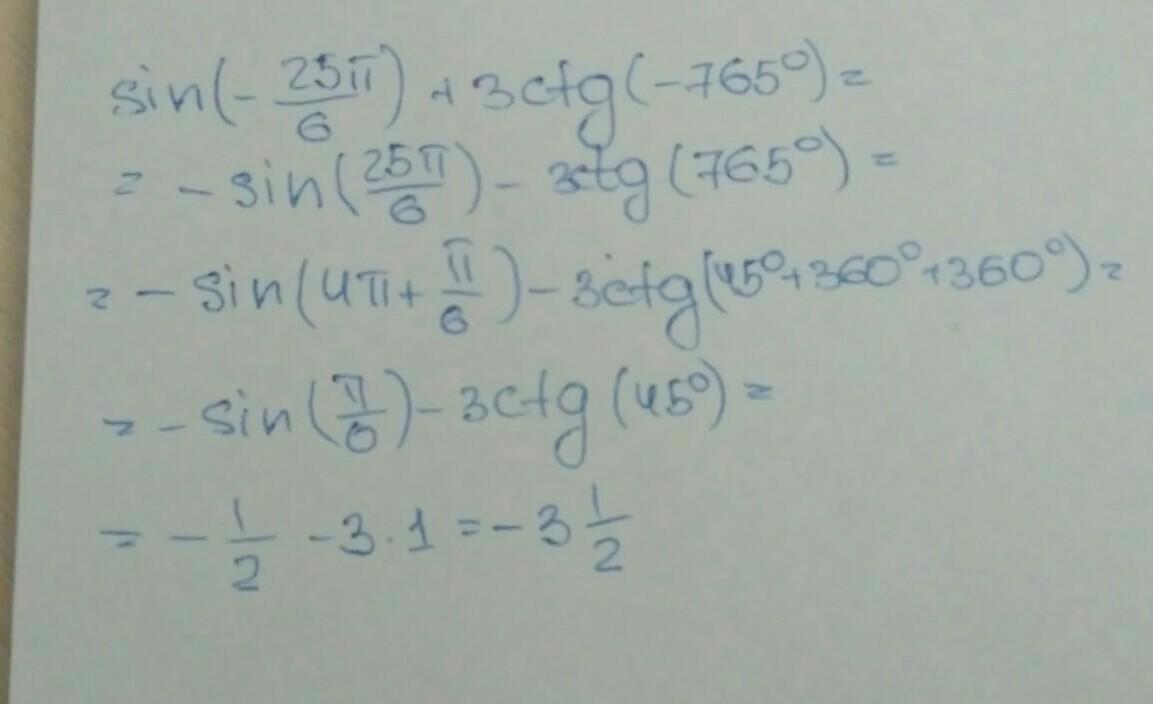 sin(-25π/6) + 3ctg(-765°) =
= -sin(25π/6) - 3ctg(765°) =
= -sin(4π+π/6) - 3ctg(45°+360°+360°) =
= -sin(π/6) - 3ctg(45°) =
= -1/2 - 3·1 = -3 1/2